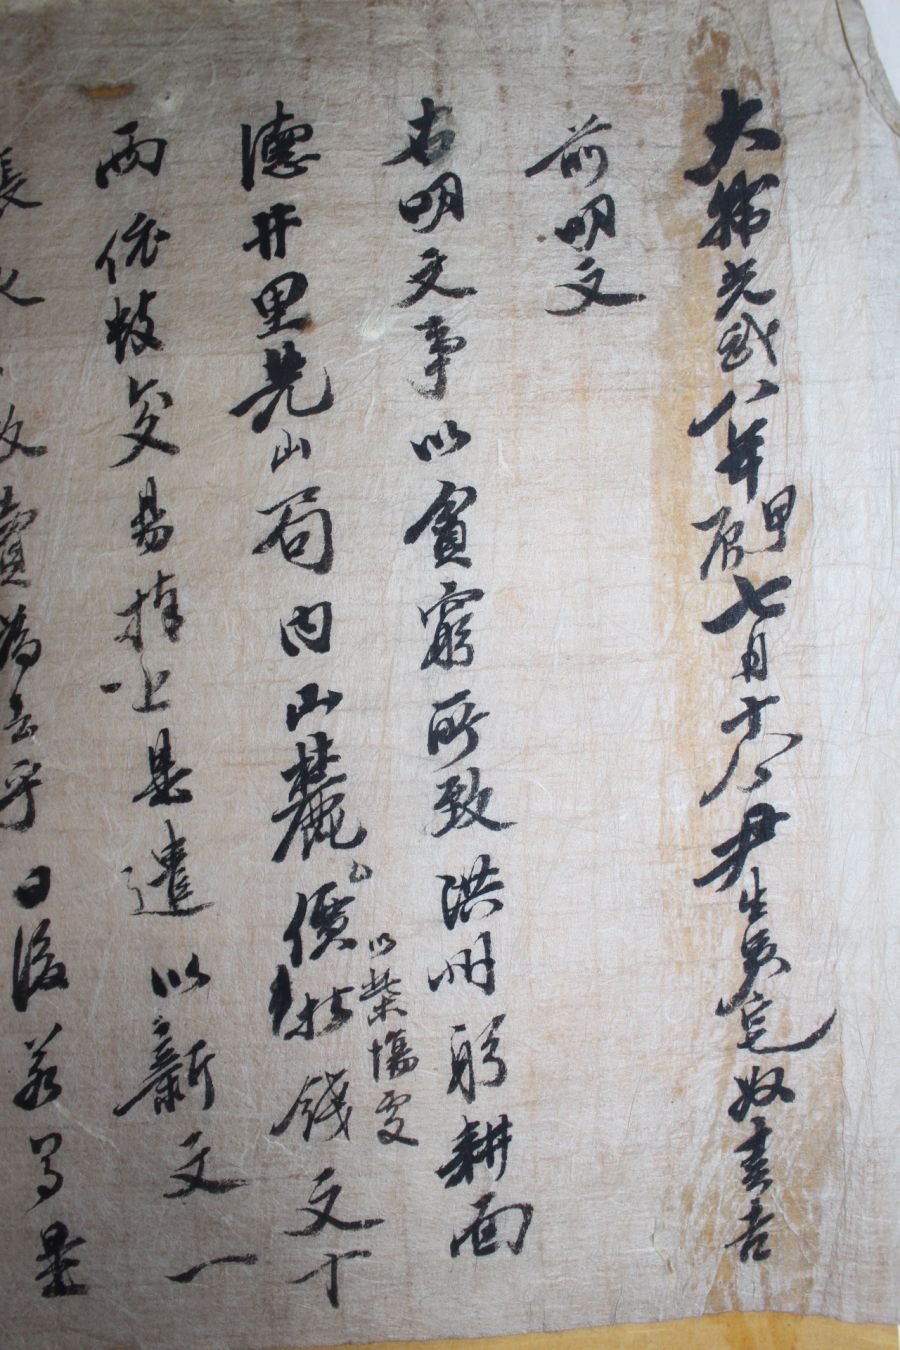 大韓光武八年甲辰七月十八日尹生員宅奴書吉
前明文
右明文事以貧窮所致洪州躬耕面
德井里先山局内山麓
以柴場處
價折錢文十
兩依數交易捧上是遣以新文一
張 永永放賣爲去乎日後若有是